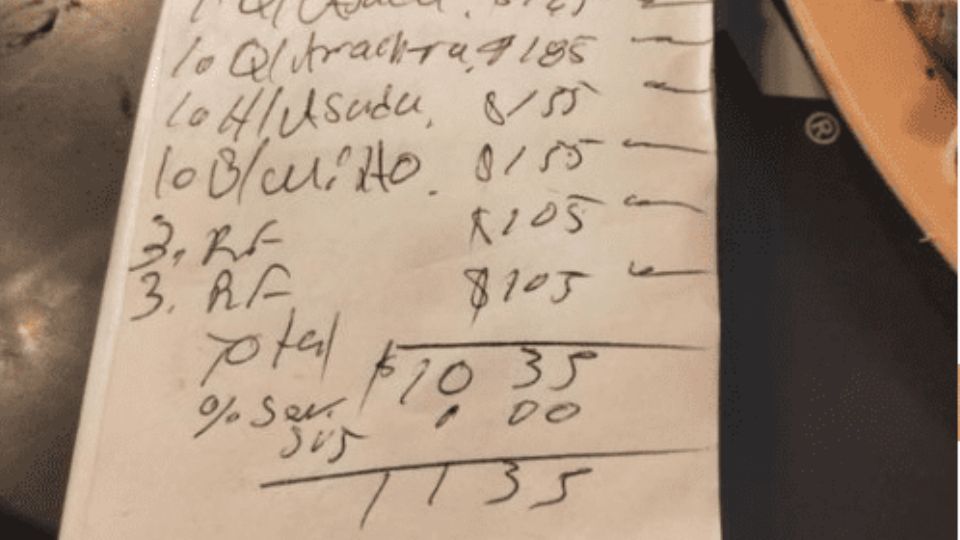 10 Q/Arrachra, $185
10 H/Asada, $155
10 B/ $155
3. RF $105
3. RF $105
Total $1035
% Ser. 100
1135
®